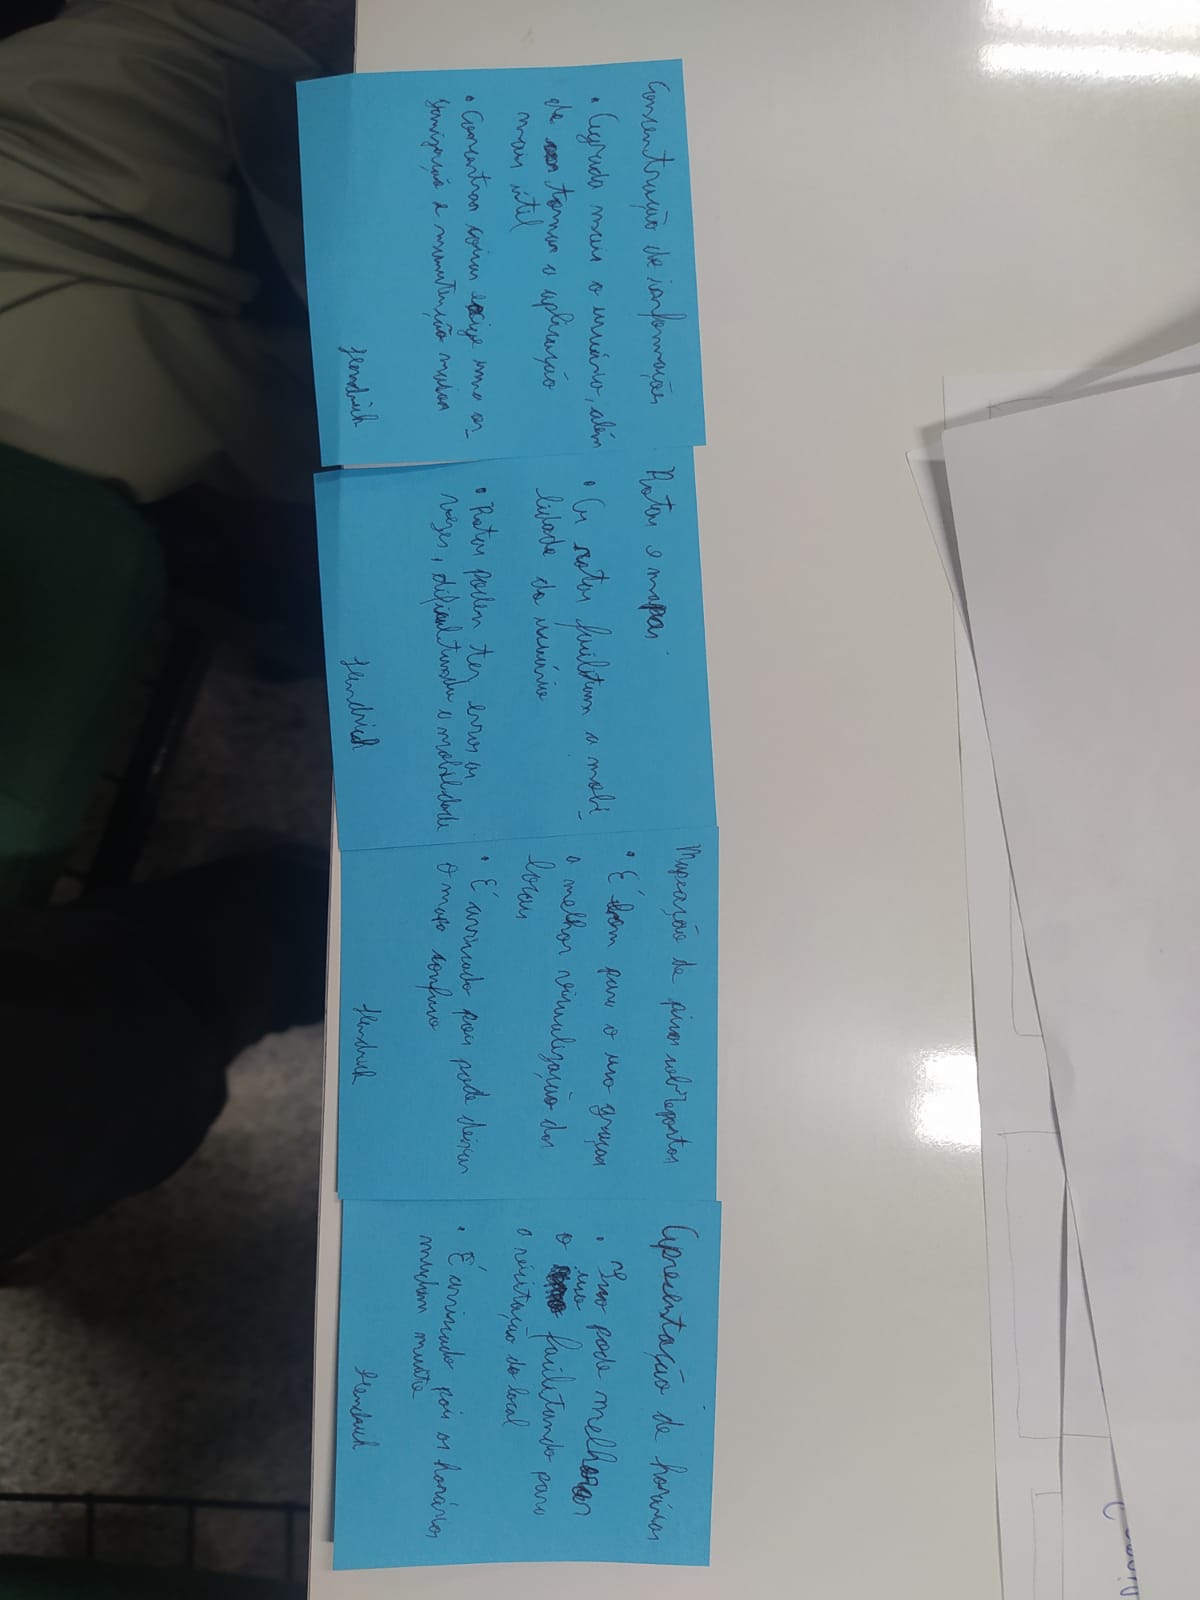 Consentração de informações
• Agrada mais o usuário, além
de tornar o aplicação
mais útil
• Concentrar coisas exige uma or-
ganização e manutenção maior
Hendrich
Rotas e mapas
• As rotas facilitam a mobi-
lidade do usuário
• Rotas podem ter erros as
vezes, dificultando a mobilidade
Hendrich
Mapeação de pisos sobrepostos
• É bom para o uso graças
a melhor visualização dos
locais
• É arriscado pois pode deixar
o mapa confuso
Hendrich
Apresentação de horários
• Isso pode melhorar
o uso facilitando para
a visitação do local
• É arriscado pois os horários
mudam muito
Hendrich